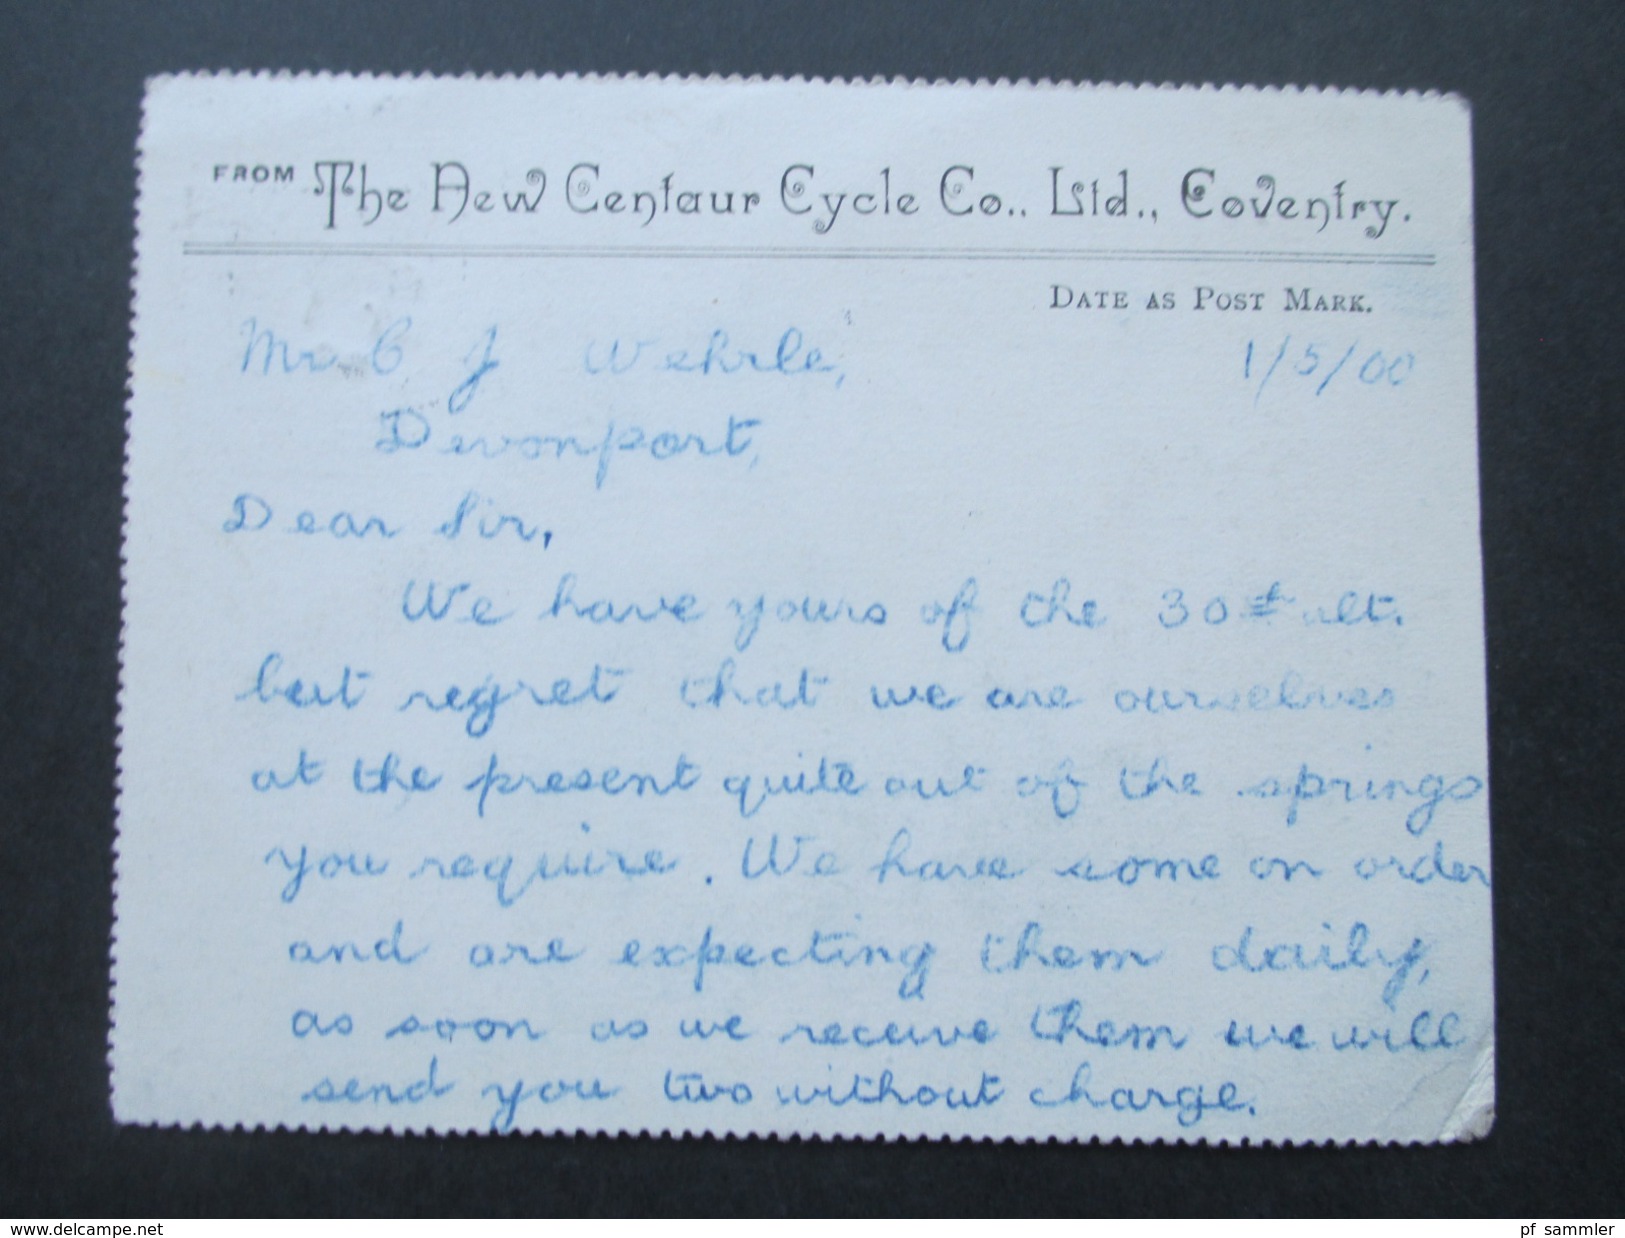 FROM The New Centaur Cycle Co., Ltd., Coventry.
DATE AS POST MARK.
Mr C J Wehrle, 1/5/00
Devonport,
Dear Sir,
We have yours of the 30th ult.
but regret that we are ourselves
at the present quite out of the springs
you require. We have some on order
and are expecting them daily,
as soon as we receive them we will
send you two without charge.
www.delcampe.net
pf_sammler